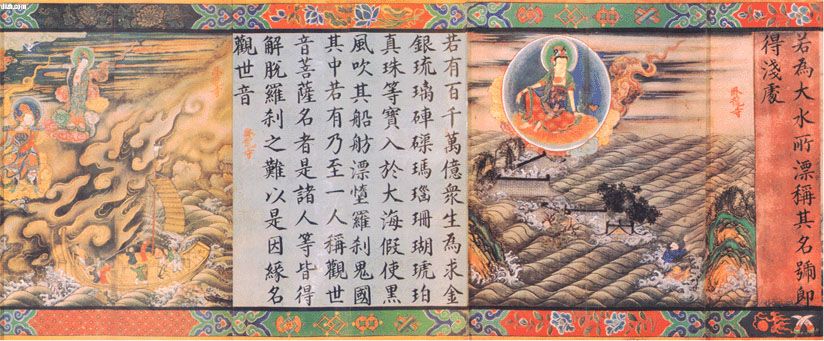 若為大水所漂稱其名號即
得淺處
若有百千萬億衆生為求金
銀琉璃硨磲瑪瑙珊瑚琥珀
真珠等寶入於大海假使黑
風吹其船舫漂墮羅刹鬼國
其中若有乃至一人稱觀世
音菩薩名者是諸人等皆得
解脫羅刹之難以是因緣名
觀世音